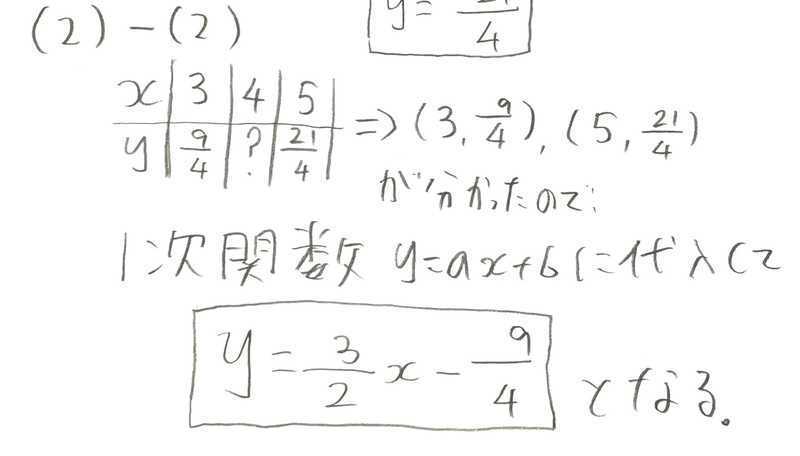 y = 21/4
(2)-(2)
x | 3 | 4 | 5 |
y | 9/4 | ? | 21/4 | ⇒ (3, 9/4), (5, 21/4)
が分かったので
1次関数 y=ax+bに代入して
y = 3/2 x - 9/4 となる.